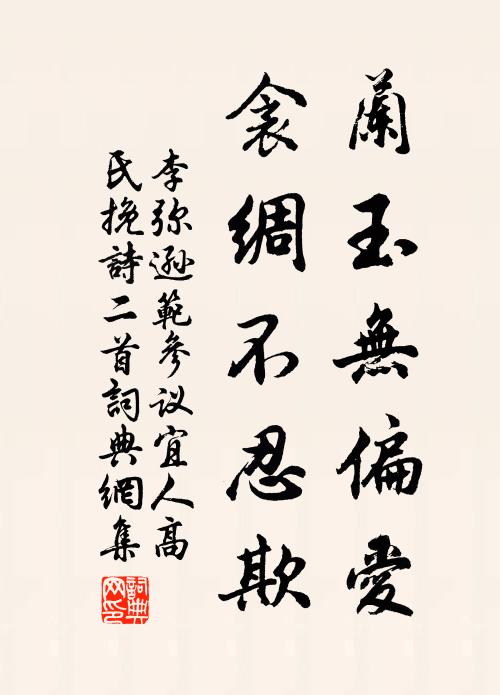 蘭玉無偏愛
衾綢不忍欺
李弥遜範參议宜人高
民挽詩二首詞典網集
詞典网印